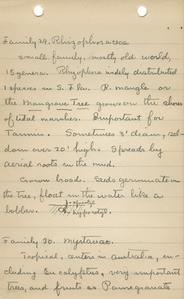 Family 29. Rhizophoraceae
small family, mostly old world,
15 genera. Rhizophora widely distributed
1 species in S. Fla. R. mangle or
the Mangrove Tree grows on the shores
of tidal marshes. Important for
Tannin. Sometimes 3' diam, sel-
dom over 20' high. Spreads by
aerial roots in the mud.
Crown broad. Seeds germinate in
the tree, float in the water like a
bobber.
hypocotyl
Family 30. Myrtaceae
Tropical, centers in Australia, in-
cluding Eucalyptus, very important
trees, and fruits as Pomegranate